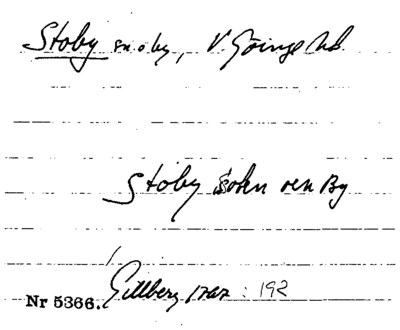 Stoby sn o by, V. Göinge hd.
Stoby sokn oen By
Gillberg 1767 : 192
Nr 5366.